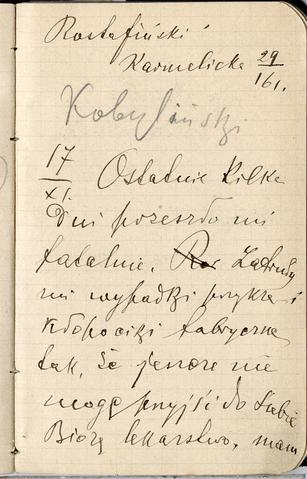 Rostafiński
Karmelicka 29
161.
Kobyliński
17
XI. Ostatnie kilka
dni przeszło mi
fatalnie.
mi wypadki przykre i
kłopociki fabryczne
tak, że jeszcze nie
mogę przyjść do siebie
Biorę lekarstwo, mam